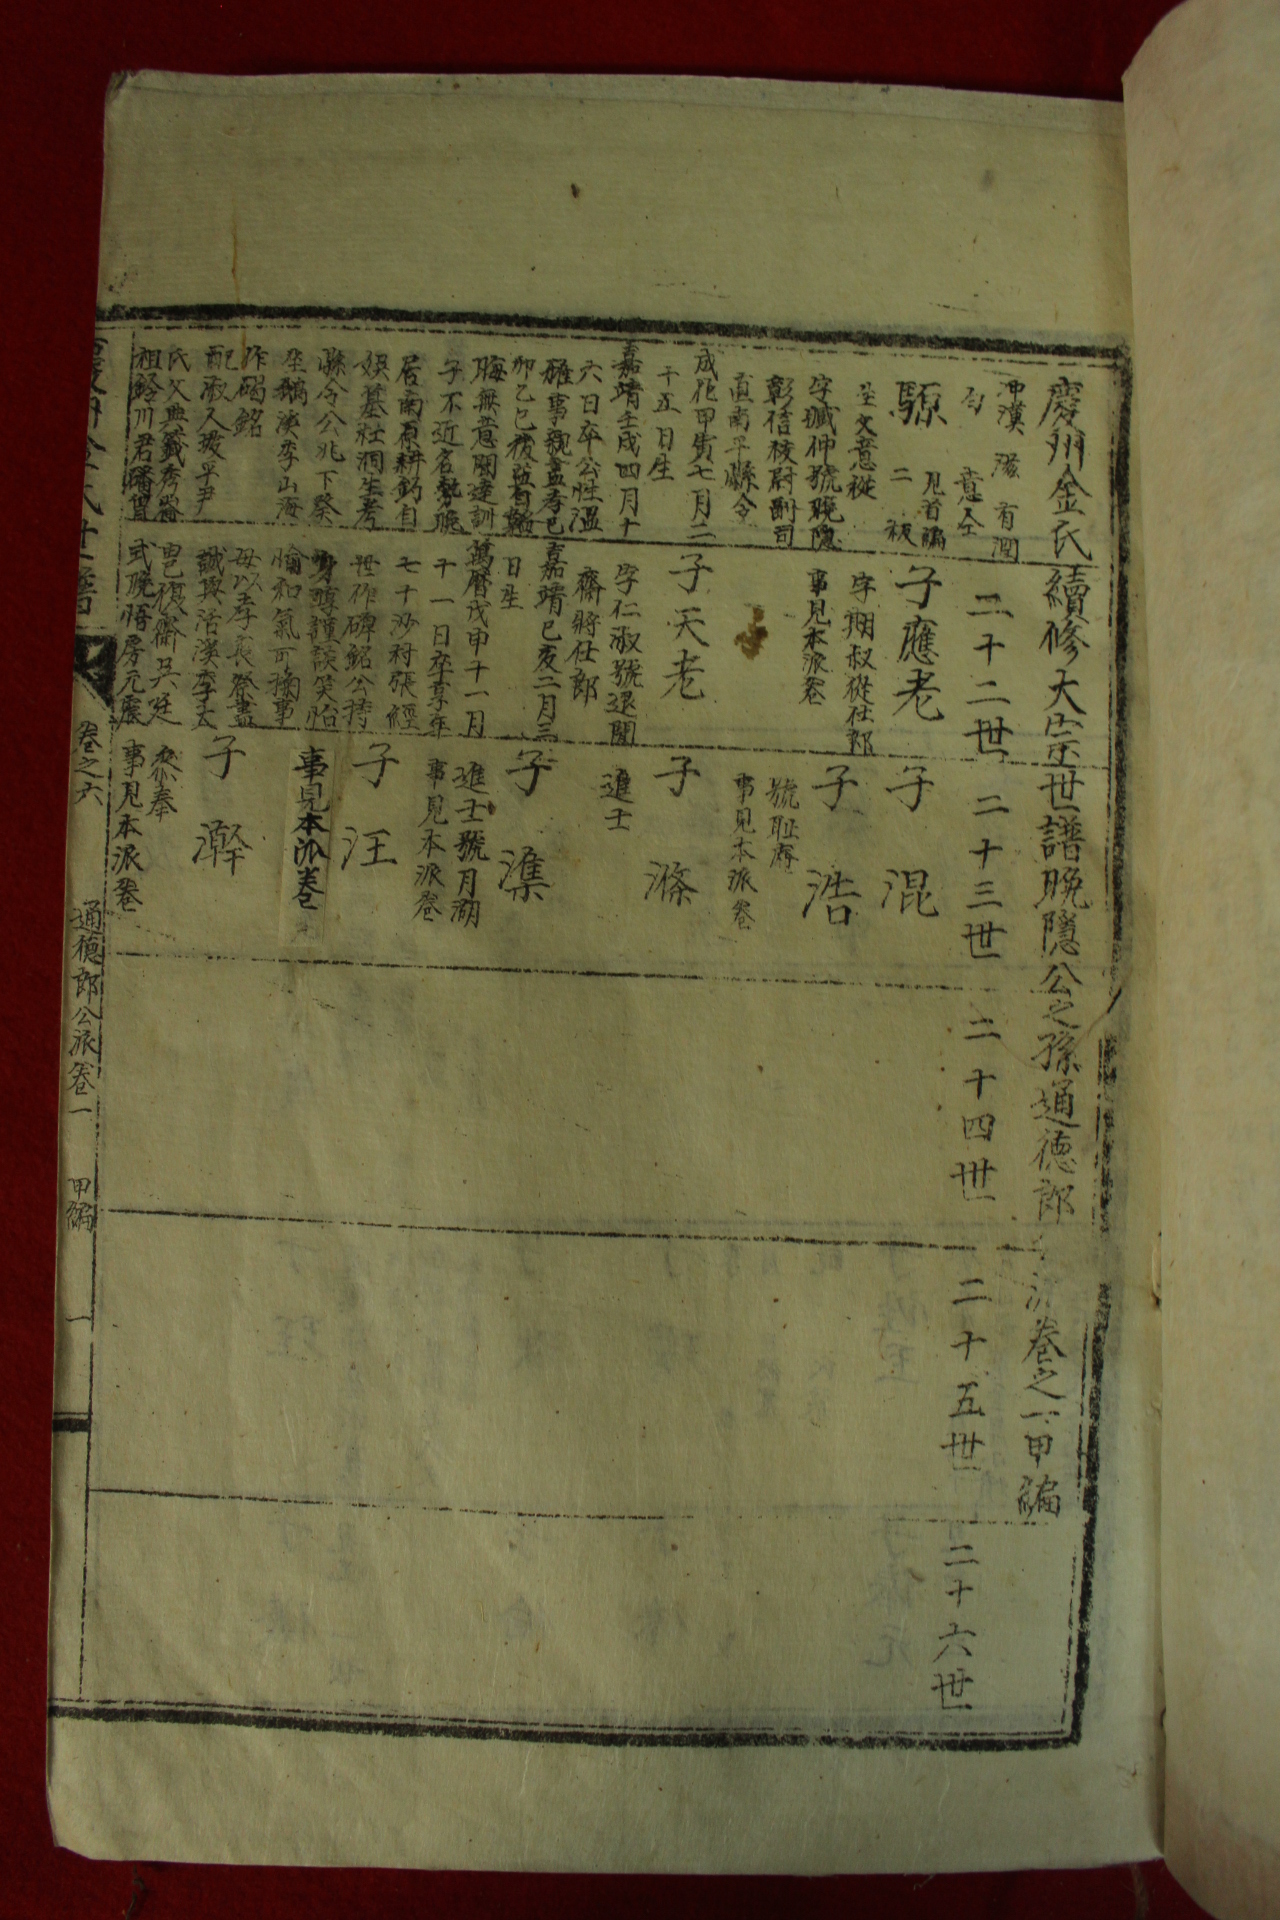 慶州金氏續修大宗世譜晩隱公之孫通德郎公派卷之一甲編
冲漢
滋
有潤
勻
意全
二十二世
二十三世
二十四世
二十五世
二十六世
騵
見首編
二板
坐文意從
字 仲號晩隱
彰信校尉副司
直南平縣令
成化甲寅七月二
十五日生
嘉靖壬戌四月十
六日卒公性溫
雅事親盡孝己
卯乙巳後益自韜
晦無意聞達訓
子不近名勢晩
居南原耕釣自
娛墓社洞生考
縣令公兆下癸
坐鵝溪李山海
作碣銘
配淑人坡平尹
氏父典籤秀崙
祖鈴川君
子應老
字期叔從仕郎
事見本派卷
子天老
字仁淑號退閒
齋將仕郎
嘉靖己亥二月三
日生
萬曆戊申十一月
十一日卒享年
七十沙村張經
世作碑銘公持
身醇謹談笑怡
愉和氣可掬事
母以孝喪祭盡
誠與活溪李大
𠃵復齋吳廷
式晩悟房元震
子混
子浩
號耻庵
事見本派卷
子滌
進士
子潗
進士號月湖
事見本派卷
子汪
事見本派卷
子澣
參奉
事見本派卷
慶州金氏世譜
卷之六
通德郎公派卷一
甲編
一